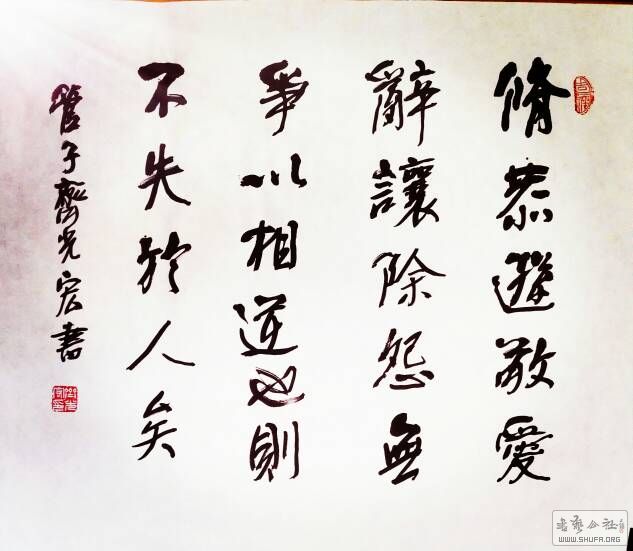 脩恭遜敬愛
辭讓除怨無
爭以相逆也則
不失於人矣
管子齊光宏書
書藝公社
WWW.SHUFA.ORG